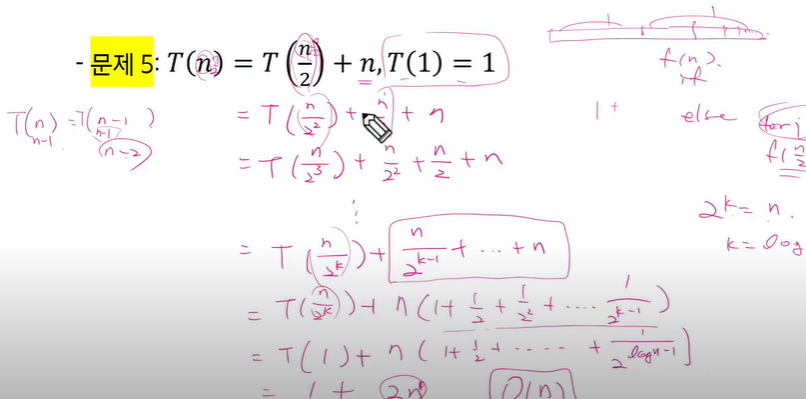 - 문제 5: T(n) = T(n/2) + n, T(1) = 1
= T(n/2²) + n/2 + n
= T(n/2³) + n/2² + n/2 + n
⋮
= T(n/2^k) + n/2^(k-1) + ... + n
= T(n/2^k) + n(1 + 1/2 + 1/2² + .... 1/2^(k-1))
= T(1) + n(1 + 1/2 + ..... + 1/2^(logn-1)]
= 1 + 2n O(n)
T(n) = T(n-1)
n-1 n-1
n-2
1 1
f(n).
if
1+ else for j
f(n/2
2^k = n.
k = log